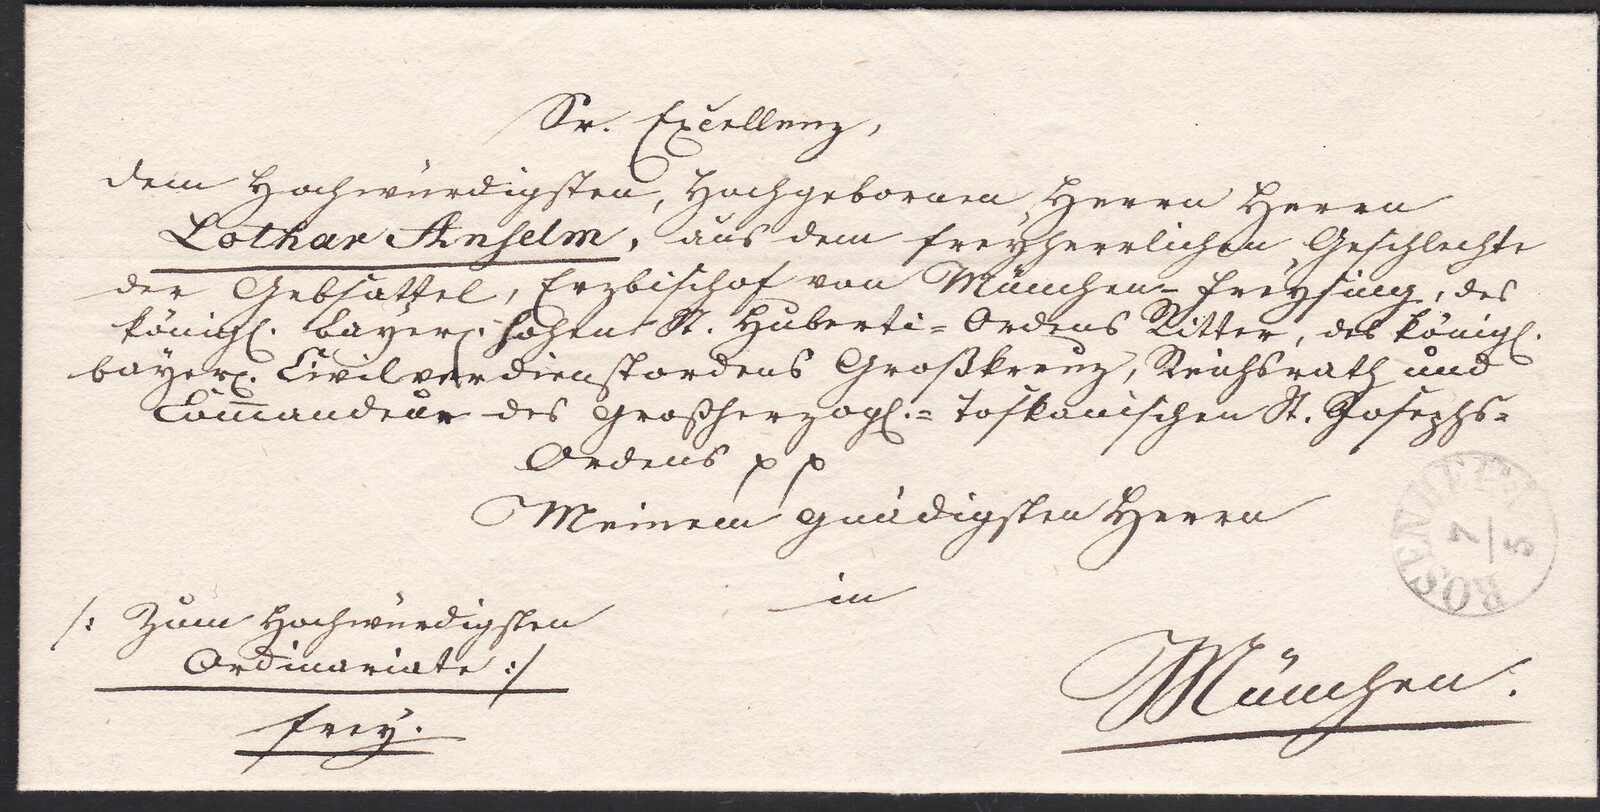 Sr. Excellenz,
dem Hochwürdigsten, Hochgebornen Herrn Herrn
Lothar Anselm, aus dem freyherrlichen Geschlechte
der Gebsattel, Erzbischof von München-Freysing, des
königl. bayer. hohen St. Huberti-Ordens Ritter, des königl.
bayer. Civilverdienstordens Großkreuz, Reichsrath und
Commandeur des Großherzogl.-toskanischen St. Josephs-
Ordens p p
Meinem gnädigsten Herrn
in
München.
/: Zum Hochwürdigsten
Ordinariate :/
frey.
ROSENHEIM
7
5